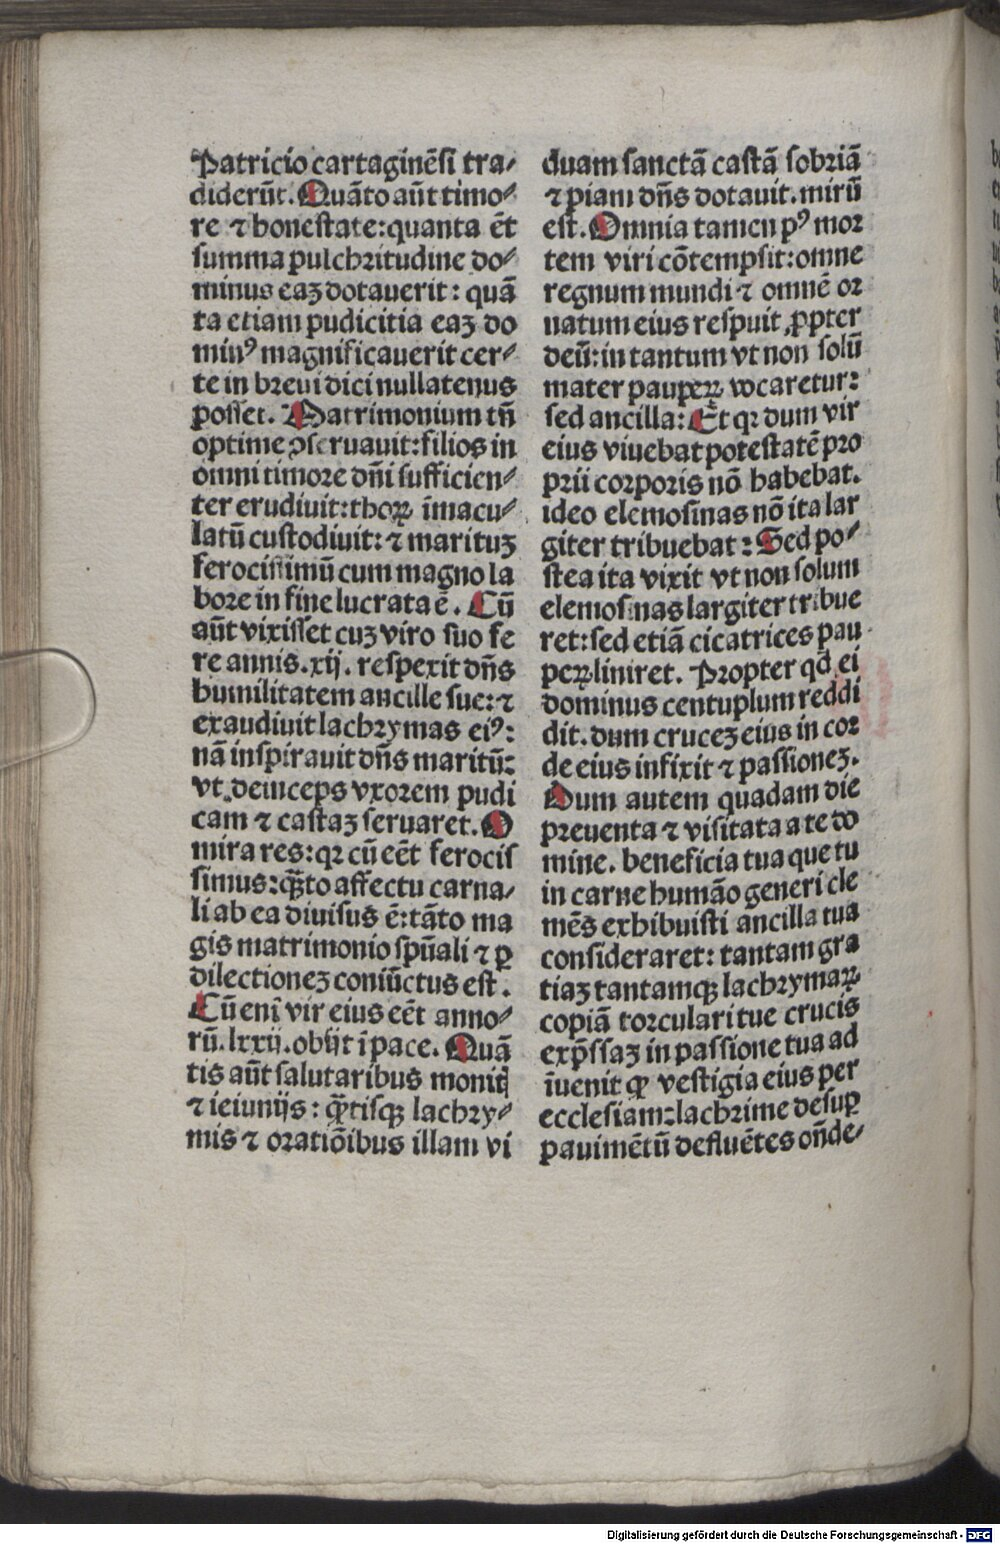 Patricio cartaginēsi tra⸗
diderūt. Quāto aūt timo⸗
re ⁊ honestate: quanta ēt
summa pulchritudine do⸗
minus eaꝫ dotauerit: quā
ta etiam pudicitia eaꝫ do
minꝰ magnificauerit cer⸗
te in breui dici nullatenus
posset. Matrimonium tn̄
optime ꝯseruauit: filios in
omni timore dn̄i sufficien⸗
ter erudiuit: thoꝝ īmacu⸗
latū custodiuit: ⁊ marituꝫ
ferocissimū cum magno la
bore in fine lucrata ē. Cū
aūt vixisset cuꝫ viro suo fe
re annis .xij. respexit dn̄s
humilitatem ancille sue: ⁊
exaudiuit lachrymas eiꝰ:
nā inspirauit dn̄s maritū:
vt deinceps vxorem pudi
cam ⁊ castaꝫ seruaret. O
mira res: qꝛ cū eēt ferocis
simus: qȝ̄to affectu carna⸗
li ab ea diuisus ē: tāto ma
gis matrimonio spūali ⁊ ꝑ
dilectioneꝫ coniūctus est.
Cū enī vir eius eēt anno⸗
rū .lxxij. obijt ī pace. Quā
tis aūt salutaribus monitꝭ
⁊ ieiunijs: qȝ̄tisqꝫ lachry⸗
mis ⁊ oratiōibus illam vi
duam sanctā castā sobriā
⁊ piam dn̄s dotauit. mirū
est. Omnia tamen pꝰ mor
tem viri cōtempsit: omne
regnum mundi ⁊ omnē or
natum eius respuit ꝓpter
deū: in tantum vt non solū
mater pauperꝝ vocaretur:
sed ancilla: Et qꝛ dum vir
eius viuebat potestatē pro
prii corporis nō habebat.
ideo elemosinas nō ita lar
giter tribuebat: Sed po⸗
stea ita vixit vt non solum
elemosinas largiter tribue
ret: sed etiā cicatrices pau
perꝝ liniret. Propter qd̄ ei
dominus centuplum reddi
dit. dum cruceꝫ eius in cor
de eius infixit ⁊ passioneꝫ.
Dum autem quadam die
preuenta ⁊ visitata a te do
mine. beneficia tua que tu
in carne humāo generi cle
mēs exhibuisti ancilla tua
consideraret: tantam gra
tiaꝫ tantamqꝫ lachrymaꝝ
copiā torculari tue crucis
exp̄ssaꝫ in passione tua ad
īuenit ꝙ vestigia eius per
ecclesiam: lachrime desuꝑ
pauimētū defluētes on̄de⸗
Digitalisierung gefördert durch die Deutsche Forschungsgemeinschaft - DFG